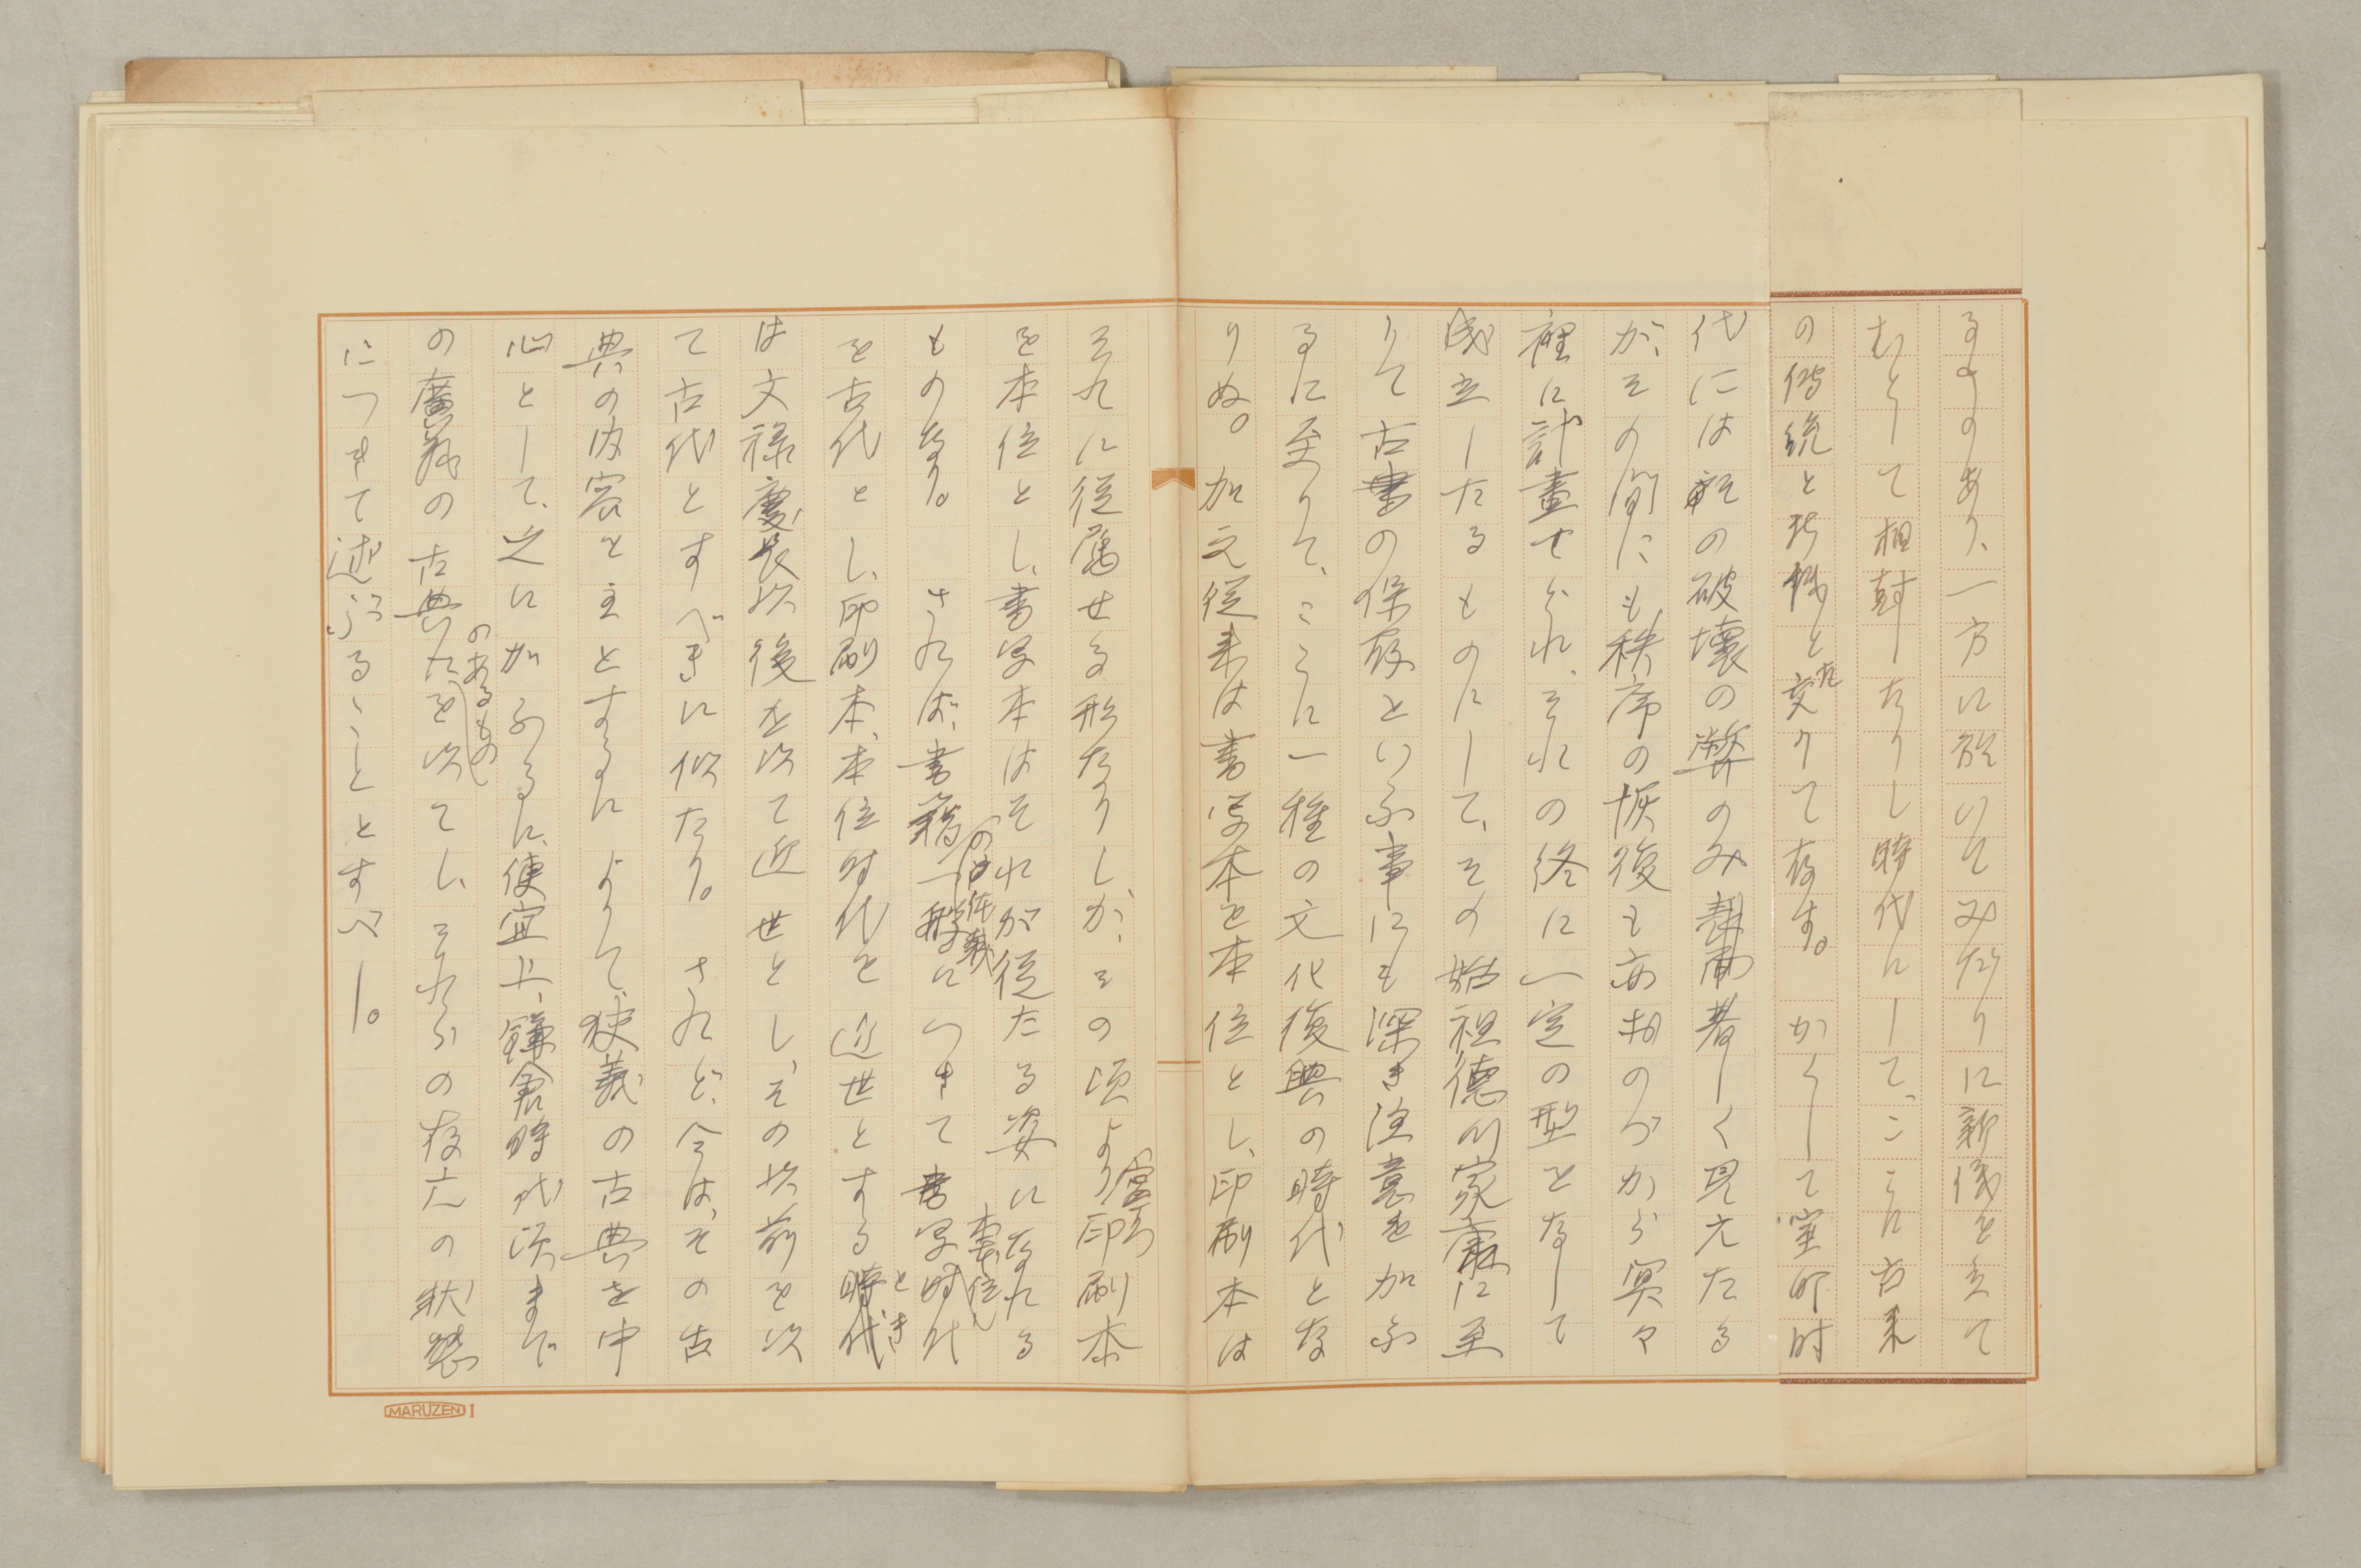 るものあり、一方に於いてみだりに新儀を立て
むとして相対したりし時代にして、ここに古来
の伝統と新儀と交りて存す。かくして室町時
代には秩の破壊の弊のみ著しく見えたる
が、その間にも秩序の恢復も亦おのづから冥々
裡に計畫せられ、それの終に一定の型となして
成立したるものにして、その始祖徳川家康に至
りて古書の保存といふ事にも深き注意を加ふ
るに至りて、ここに一種の文化復興の時代とな
りぬ。加之従来は書写本を本位とし、印刷本は
それに従属せる形なりしが、その頃より寧ろ印刷本
を本位とし、書写本はそれが従たる姿になれる
ものなり。されば、書籍一般につきて書写本位時代
を古代とし、印刷本、本位時代を近世とするとき
は文禄慶長以後を以て近世とし、その以前を以
て古代とすべきに似たり。されど、今は、その古
典の内容を主とするによりて、狭義の古典を中
心として、之にかふるに、便宜上、鎌倉時代頃まで
の廣義の古典のあるものを以てし、それらの存亡の状態
につきて述ぶることとすべし。
MARUZEN I